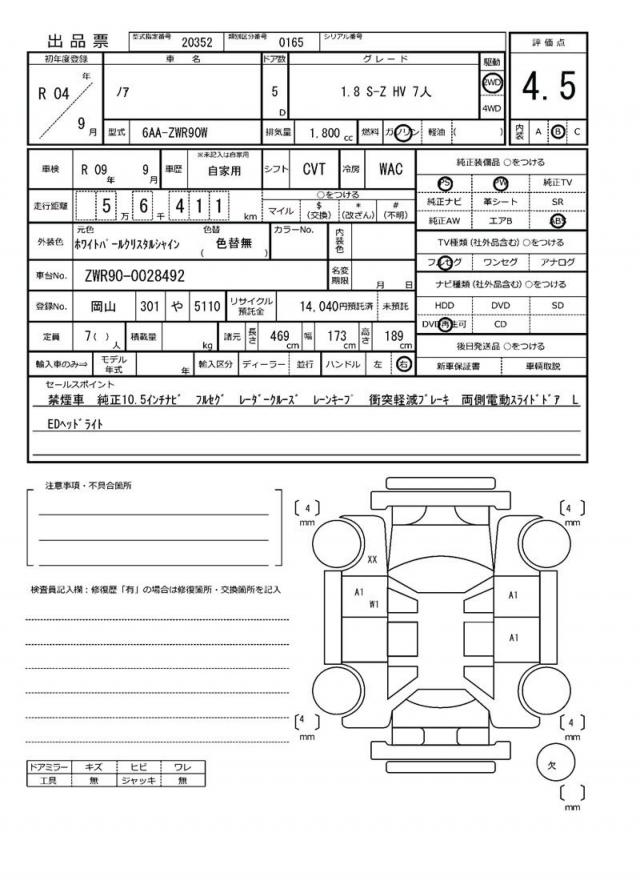 出品票 型式指定番号 20352 類別区分番号 0165 シリアル番号
評価点
4.5
内装 A B C
初年度登録 車名 ドア数 グレード 駆動
R 04 年 9 月
ノア
5 D
1.8 S-Z HV 7人
2WD
4WD
型式 6AA-ZWR90W 排気量 1,800 cc 燃料 ガソリン 軽油 ( )
車検 R 09 年 9 月 車歴 ※未記入は自家用 自家用 シフト CVT 冷房 WAC
走行距離 5 万 6 千 4 1 1 km
○をつける
マイル $ (交換) * (改ざん) # (不明)
外装色 元色 ホワイトパールクリスタルシャイン 色替 ( 色替無 ) カラーNo. 内装色
車台No. ZWR90-0028492 名変期限 月 日
登録No. 岡山 301 や 5110 リサイクル預託金 14,040円預託済 未預託
定員 7( ) 人 積載量 kg 諸元 長さ 469 cm 幅 173 cm 高さ 189 cm
輸入車のみ⇒ モデル年式 年 輸入区分 ディーラー 並行 ハンドル 左 右
純正装備品 ○をつける
PS PW 純正TV
純正ナビ 革シート SR
純正AW エアB ABS
TV種類(社外品含む)○をつける
フルセグ ワンセグ アナログ
ナビ種類(社外品含む)○をつける
HDD DVD SD
DVD再生可 CD
後日発送品 ○をつける
新車保証書 車輌取説
セールスポイント
禁煙車 純正10.5インチナビ フルセグ レーダークルーズ レーンキープ 衝突軽減ブレーキ 両側電動スライドドア L
EDヘッドライト
注意事項・不具合箇所
検査員記入欄:修復歴「有」の場合は修復箇所・交換箇所を記入
ドアミラー キズ ヒビ ワレ
工具 無 ジャッキ 無
[ 4 ] mm
[ 4 ] mm
XX
A1
W1
A1
A1
[ 4 ] mm
[ 4 ] mm
欠
[ ] mm